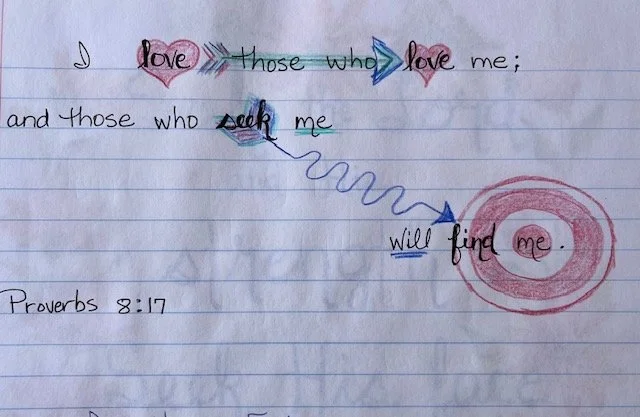 I love those who love me;
and those who seek me
will find me.
Proverbs 8:17